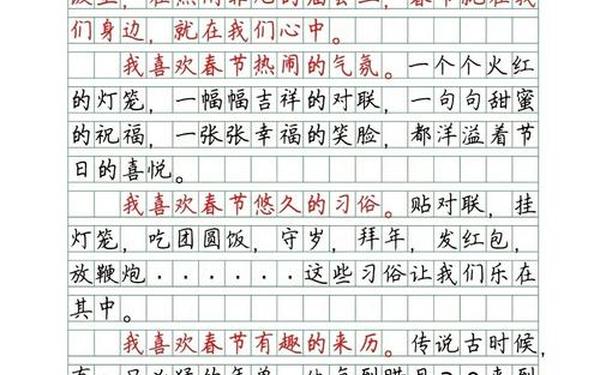 们身边，就在我们心中。
我喜欢春节热闹的气氛。一个个火红
的灯笼，一幅幅吉祥的对联，一句句甜蜜
的祝福，一张张幸福的笑脸，都洋溢着节
日的喜悦。
我喜欢春节悠久的习俗。贴对联，挂
灯笼，吃团圆饭，守岁，拜年，发红包，
放鞭炮······这些习俗让我们乐在
其中。
我喜欢春节有趣的来历。传说古时候，